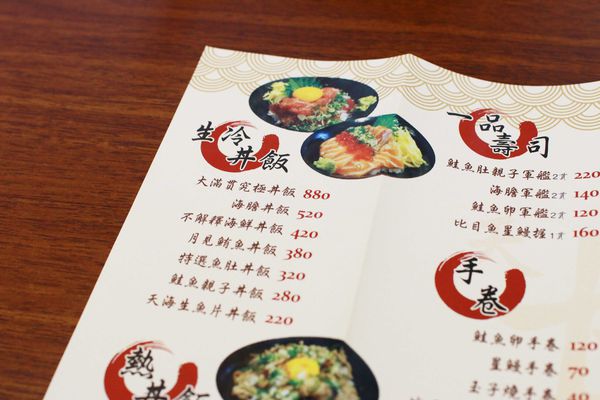 生冷丼飯
大滿貫究極丼飯 880
海膽丼飯 520
不解釋海鮮丼飯 420
月見鮪魚丼飯 380
特選魚肚丼飯 320
鮭魚親子丼飯 280
天海生魚片丼飯 220
熱丼飯
一品壽司
鮭魚肚親子軍艦2貫 220
海膽軍艦2貫 140
鮭魚卵軍艦2貫 120
比目魚星鰻握1貫 160
手卷
鮭魚卵手卷 120
星鰻手卷 70
玉子燒手卷 40